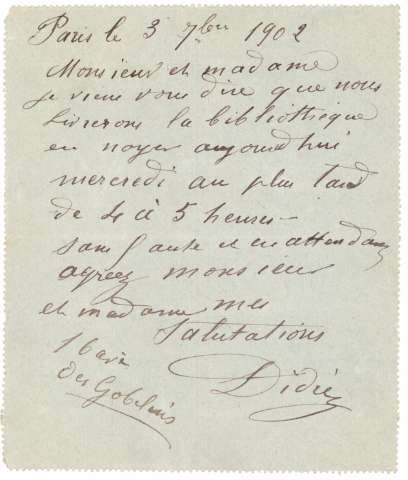 Paris le 3 7bre 1902
Monsieur et madame
je viens vous dire que nous
livrerons la bibliothèque
en noyer aujourdhui
mercredi au plus tard
de 4 à 5 heures -
sans faute et en attendant
agréez monsieur
et madame mes
Salutations
Didier
16 av
des Gobelins